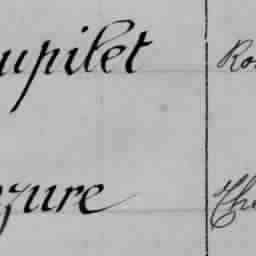 upilet Ro
zure The